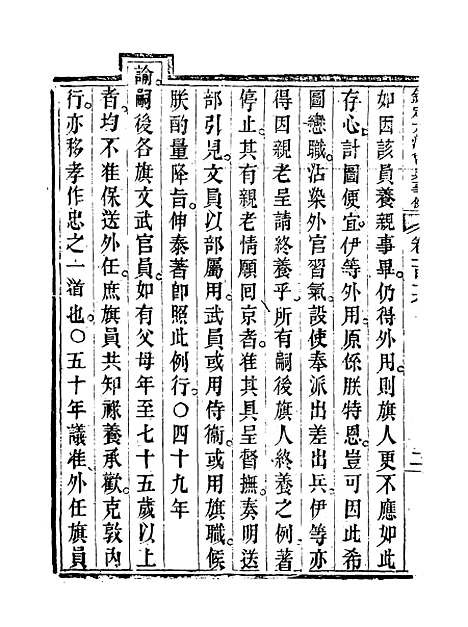 如因該員養親事畢仍得外用則旗人更不應如此
存心計圖便宜伊等外用原係朕特恩豈可因此希
圖戀職沾染外官習氣設使奉派出差出兵伊等亦
得因親老呈請終養乎所有嗣後旗人終養之例著
停止其有親老情願回京者准其具呈督撫奏明送
部引見文員以部屬用武員或用侍衞或用旗職候
朕酌量降旨伸泰著卽照此例行○四十九年
諭嗣後各旗文武官員如有父母年至七十五歲以上
者均不准保送外任庶旗員共知祿養承歡克敦內
行亦移孝作忠之一道也○五十年議准外任旗員